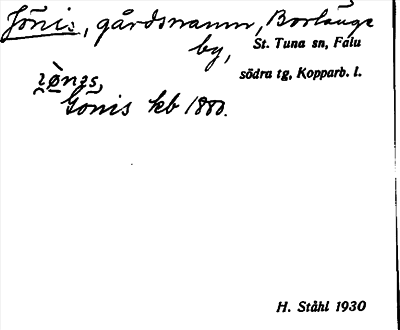 Jönis, gårdsnamn, Borlänge
by, St. Tuna sn, Falu
södra tg, Kopparb. l.
Gönis kb 1880.
H. Ståhl 1930